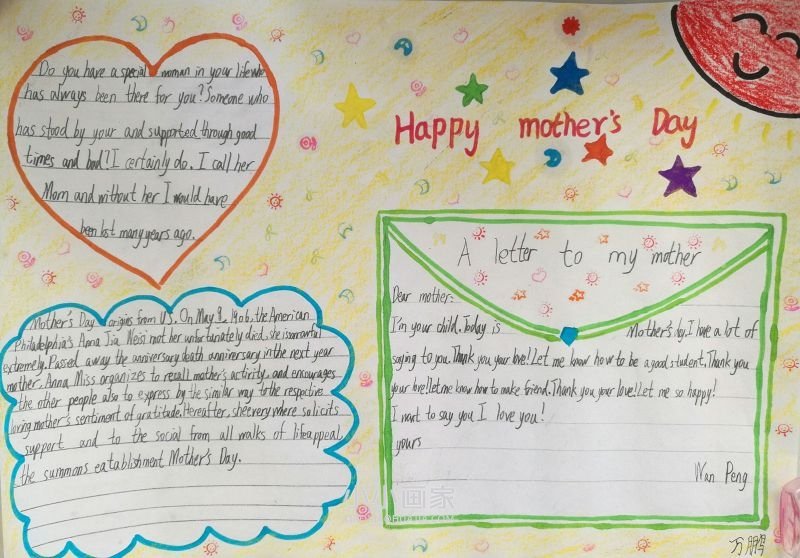 Do you have a special woman in your life who
has always been there for you? Someone who
has stood by your and supported through good
times and bad? I certainly do. I call her
Mom and without her I would have
been lost many years ago.
Happy mother's Day
Mother's Day origins from U.S. On May 9, 1906. the American
Philadelphia's Anna Jia Meisi not her unfortunately died, she is
extremely. Passed away the anniversary death anniversary in the next year
mother. Anna Miss organizes to resall mother's activity, and encourages
the other people also to express by the similar way to the respective
loving mother's sentiment of gratitude. Hereafter, she every where solicits
support and to the social from all walks of life appeal,
the summons eatablishment Mother's Day.
A letter to my mother
Dear mother:
I'm your child. Today is Mother's day. I have a lot of
saying to you. Thank you your love! Let me know how to be a good student. Thank you
your love! let me know how to make friend. Thank you your love! Let me so happy!
I want to say you I love you!
yours
Wan Peng
万鹏